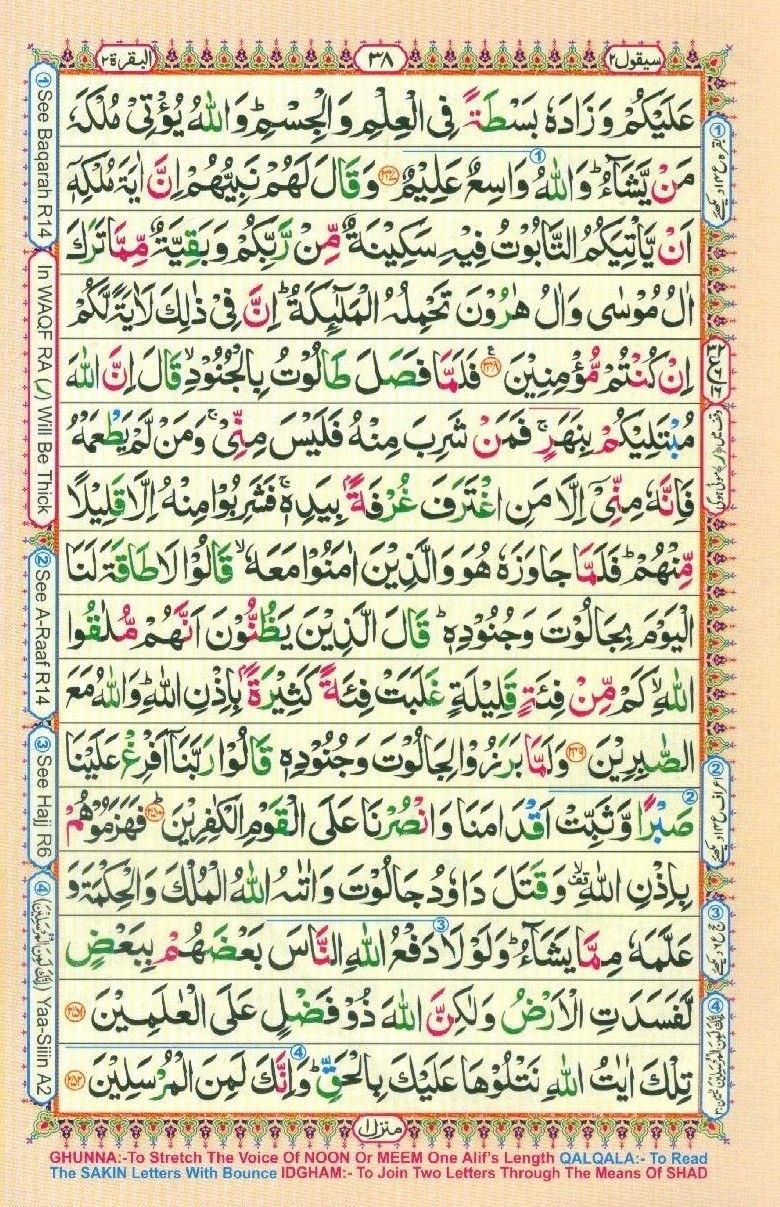 سیقول۲
۳۸
البقرة۲
عَلَيْكُمْ وَزَادَهٗ بَسْطَةً فِى الْعِلْمِ وَالْجِسْمِ ؕ وَاللّٰهُ يُؤْتِىْ مُلْكَهٗ
مَنْ يَّشَآءُ ؕ وَاللّٰهُ وَاسِعٌ عَلِيْمٌ ﴿۲۴۷﴾ وَقَالَ لَهُمْ نَبِيُّهُمْ اِنَّ اٰيَةَ مُلْكِهٖۤ
اَنْ يَّاْتِيَكُمُ التَّابُوْتُ فِيْهِ سَكِيْنَةٌ مِّنْ رَّبِّكُمْ وَبَقِيَّةٌ مِّمَّا تَرَكَ
اٰلُ مُوْسٰى وَاٰلُ هٰرُوْنَ تَحْمِلُهُ الْمَلٰٓئِكَةُ ؕ اِنَّ فِىْ ذٰلِكَ لَاٰيَةً لَّكُمْ
اِنْ كُنْتُمْ مُّؤْمِنِيْنَ ﴿۲۴۸﴾ فَلَمَّا فَصَلَ طَالُوْتُ بِالْجُنُوْدِ ۙ قَالَ اِنَّ اللّٰهَ
مُبْتَلِيْكُمْ بِنَهَرٍ ۚ فَمَنْ شَرِبَ مِنْهُ فَلَيْسَ مِنِّىْ ۚ وَمَنْ لَّمْ يَطْعَمْهُ
فَاِنَّهٗ مِنِّىْۤ اِلَّا مَنِ اغْتَرَفَ غُرْفَةًۢ بِيَدِهٖ ۚ فَشَرِبُوْا مِنْهُ اِلَّا قَلِيْلًا
مِّنْهُمْ ؕ فَلَمَّا جَاوَزَهٗ هُوَ وَالَّذِيْنَ اٰمَنُوْا مَعَهٗ ۙ قَالُوْا لَا طَاقَةَ لَنَا
الْيَوْمَ بِجَالُوْتَ وَجُنُوْدِهٖ ؕ قَالَ الَّذِيْنَ يَظُنُّوْنَ اَنَّهُمْ مُّلٰقُوا
اللّٰهِ ۙ كَمْ مِّنْ فِئَةٍ قَلِيْلَةٍ غَلَبَتْ فِئَةً كَثِيْرَةًۢ بِاِذْنِ اللّٰهِ ؕ وَاللّٰهُ مَعَ
الصّٰبِرِيْنَ ﴿۲۴۹﴾ وَلَمَّا بَرَزُوْا لِجَالُوْتَ وَجُنُوْدِهٖ قَالُوْا رَبَّنَاۤ اَفْرِغْ عَلَيْنَا
صَبْرًا وَّثَبِّتْ اَقْدَامَنَا وَانْصُرْنَا عَلَى الْقَوْمِ الْكٰفِرِيْنَ ﴿۲۵۰﴾ فَهَزَمُوْهُمْ
بِاِذْنِ اللّٰهِ ۙ وَقَتَلَ دَاوٗدُ جَالُوْتَ وَاٰتٰىهُ اللّٰهُ الْمُلْكَ وَالْحِكْمَةَ وَ
عَلَّمَهٗ مِمَّا يَشَآءُ ؕ وَلَوْلَا دَفْعُ اللّٰهِ النَّاسَ بَعْضَهُمْ بِبَعْضٍ
لَّفَسَدَتِ الْاَرْضُ وَلٰكِنَّ اللّٰهَ ذُوْ فَضْلٍ عَلَى الْعٰلَمِيْنَ ﴿۲۵۱﴾
تِلْكَ اٰيٰتُ اللّٰهِ نَتْلُوْهَا عَلَيْكَ بِالْحَقِّ ؕ وَاِنَّكَ لَمِنَ الْمُرْسَلِيْنَ ﴿۲۵۲﴾
منزل۱
① See Baqarah R14
In WAQF RA (ر) Will Be Thick
② See A-Raaf R14
③ See Hajj R6
④ (اِنَّكَ لَمِنَ الْمُرْسَلِيْنَ) Yaa-Siiin A2
GHUNNA:-To Stretch The Voice Of NOON Or MEEM One Alif's Length QALQALA:- To Read
The SAKIN Letters With Bounce IDGHAM:- To Join Two Letters Through The Means Of SHAD